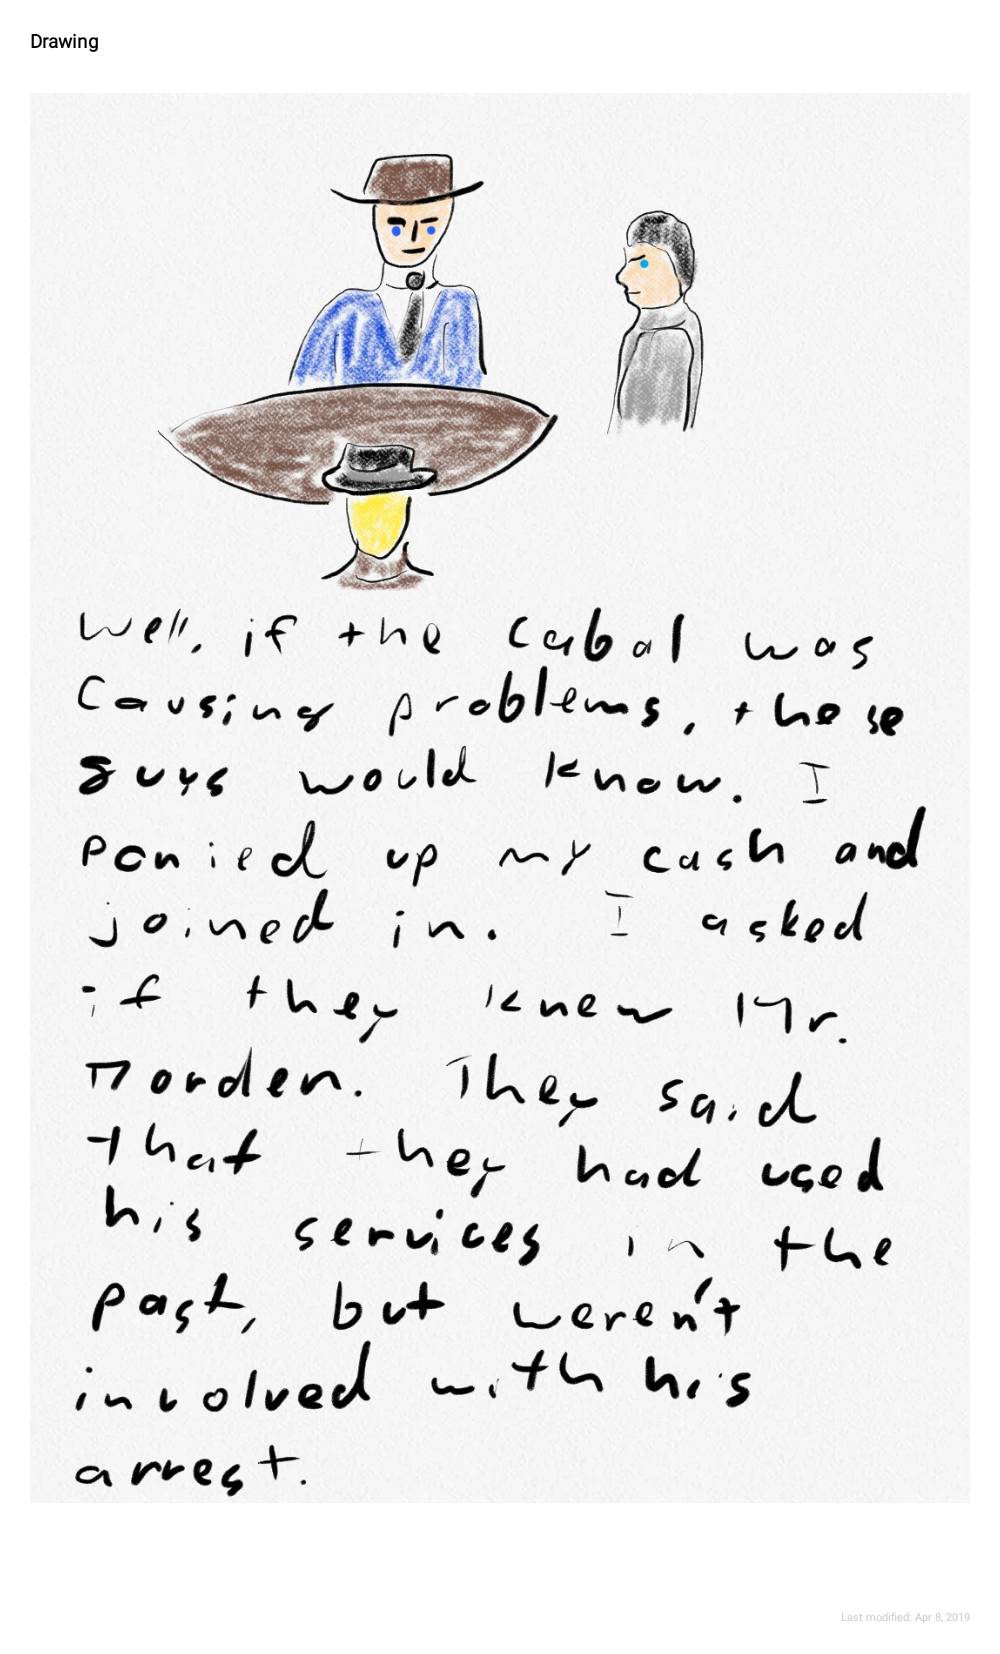 Drawing
Well, if the Cabal was
Causing problems, these
guys would know. I
ponied up my cash and
joined in. I asked
if they knew Mr.
Morden. They said
that they had used
his services in the
past, but weren't
involved with his
arrest.
Last modified: Apr 8, 2019